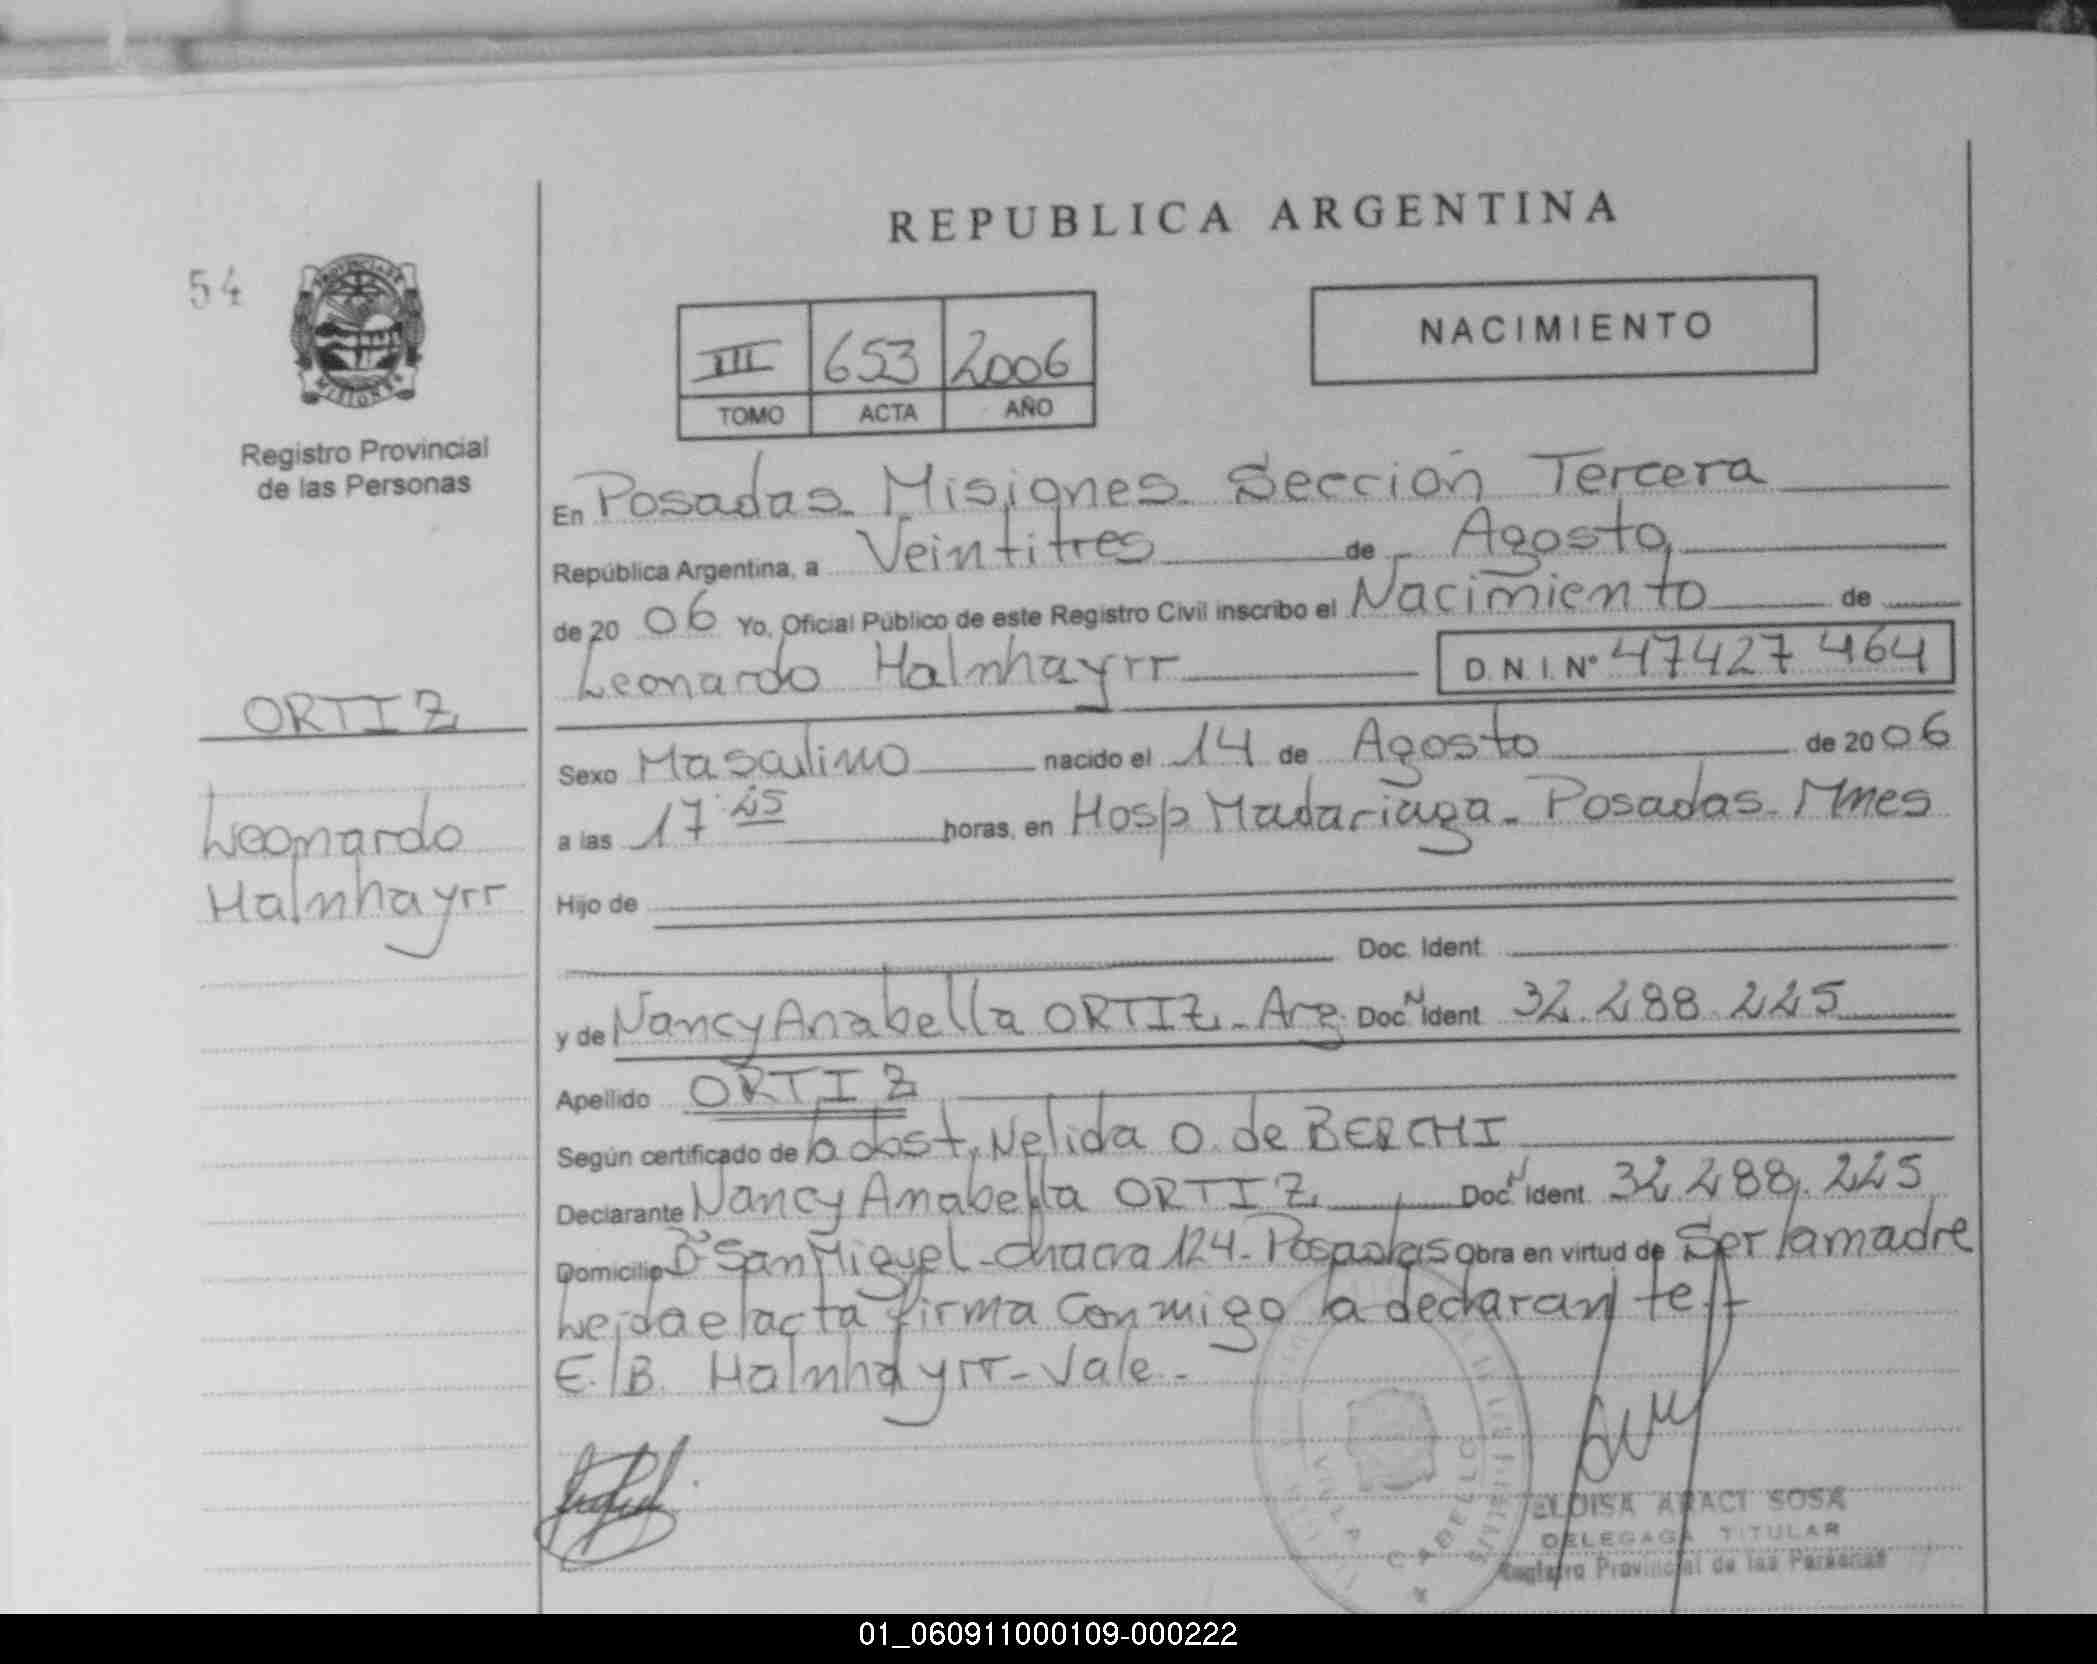 REPUBLICA ARGENTINA
54
PROVINCIA DE
MISIONES
Registro Provincial
de las Personas
III 653 2006
TOMO ACTA AÑO
NACIMIENTO
En Posadas. Misiones. Sección Tercera
República Argentina, a Veintitres de Agosto
de 20 06 Yo, Oficial Público de este Registro Civil inscribo el Nacimiento de
Leonardo Halnhayrr D.N.I. Nº 47427464
ORTIZ
Leonardo
Halnhayrr
Sexo Masculino nacido el 14 de Agosto de 20 06
a las 17:25 horas, en Hosp Madariaga. Posadas. Mnes
Hijo de
Doc. Ident.
y de Nancy Anabella ORTIZ. Arg. Doc. N Ident 32.288.225
Apellido ORTIZ
Según certificado de la obst. Nelida O. de BERCHI
Declarante Nancy Anabella ORTIZ Doc. N Ident. 32.288.225
Domicilio Bº San Miguel - chacra 124. Posadas Obra en virtud de Ser la madre
Leida el acta firma Conmigo la declarante
E/B. Halnhayrr - Vale -
VILLA CABELLO
ELOISA ARACI SOSA
DELEGADA TITULAR
Registro Provincial de las Personas
01_060911000109-000222